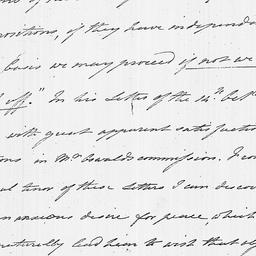 ositions, if they have independ
basis we may proceed if not we
off." In his Letter of the 14th. he
with great apparent satisfaction
ons in Mr. Oswalds commission. From
al tenor of these Letters I can discov
an anxious desire for peace, which
naturally lead him to wish that